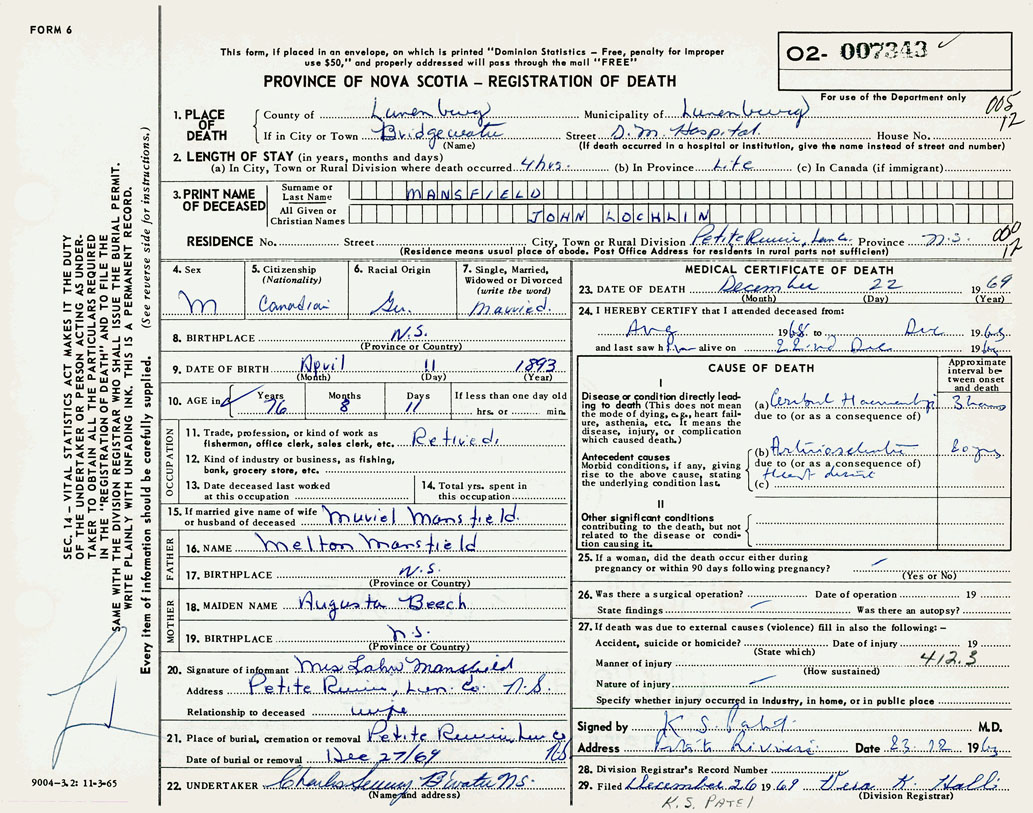 FORM 6
This form, if placed in an envelope, on which is printed "Dominion Statistics – Free, penalty for improper
use $50," and properly addressed will pass through the mail "FREE"
PROVINCE OF NOVA SCOTIA – REGISTRATION OF DEATH
02- 007343
For use of the Department only
005
12
1. PLACE OF DEATH
County of Lunenburg Municipality of Lunenburg
If in City or Town Bridgewater Street D.M. Hospital House No.
(Name) (If death occurred in a hospital or institution, give the name instead of street and number)
2. LENGTH OF STAY (in years, months and days)
(a) In City, Town or Rural Division where death occurred 4 hrs. (b) In Province Life (c) In Canada (if immigrant)
3. PRINT NAME OF DECEASED
Surname or Last Name MANSFIELD
All Given or Christian Names JOHN LOCHLIN
RESIDENCE No. Street City, Town or Rural Division Petite Riviere, Lun Co. Province N.S.
000
12
(Residence means usual place of abode. Post Office Address for residents in rural parts not sufficient)
4. Sex M
5. Citizenship (Nationality) Canadian
6. Racial Origin Ger.
7. Single, Married, Widowed or Divorced (write the word) Married.
8. BIRTHPLACE N.S.
(Province or Country)
9. DATE OF BIRTH April 11 1893
(Month) (Day) (Year)
10. AGE in Years 76 Months 8 Days 11 If less than one day old hrs. or min.
OCCUPATION
11. Trade, profession, or kind of work as
fisherman, office clerk, sales clerk, etc. Retired.
12. Kind of industry or business, as fishing,
bank, grocery store, etc.
13. Date deceased last worked
at this occupation
14. Total yrs. spent in
this occupation
15. If married give name of wife
or husband of deceased Muriel Mansfield.
FATHER
16. NAME Melton Mansfield
17. BIRTHPLACE N.S.
(Province or Country)
MOTHER
18. MAIDEN NAME Augusta Beech
19. BIRTHPLACE N.S.
(Province or Country)
20. Signature of informant Mrs John Mansfield
Address Petite Riviere, Lun. Co. N.S.
Relationship to deceased wife
21. Place of burial, cremation or removal Petite Riviere, Lun Co
N.S.
Date of burial or removal Dec 27/69
22. UNDERTAKER Charles B'water N.S.
(Name and address)
MEDICAL CERTIFICATE OF DEATH
23. DATE OF DEATH December 22 1969
(Month) (Day) (Year)
24. I HEREBY CERTIFY that I attended deceased from:
Aug 1968 to Dec 1969
and last saw him alive on 22nd Dec 1969
CAUSE OF DEATH
Approximate interval between onset and death
I
Disease or condition directly lead-
ing to death (This does not mean
the mode of dying, e.g., heart fail-
ure, asthenia, etc. It means the
disease, injury, or complication
which caused death.)
(a) Cerebral Haemorrhage 3 hours
due to (or as a consequence of)
Antecedent causes
Morbid conditions, if any, giving
rise to the above cause, stating
the underlying condition last.
(b) Arteriosclerotic
due to (or as a consequence of)
Heart disease
(c)
II
Other significant conditions
contributing to the death, but not
related to the disease or condi-
tion causing it.
25. If a woman, did the death occur either during
pregnancy or within 90 days following pregnancy?
(Yes or No)
26. Was there a surgical operation? Date of operation 19
State findings Was there an autopsy?
27. If death was due to external causes (violence) fill in also the following: –
Accident, suicide or homicide? Date of injury 19
(State which)
412.3
Manner of injury
(How sustained)
Nature of injury
Specify whether injury occurred in industry, in home, or in public place
Signed by K. S. Patel M.D.
Address Petite Riviere Date 23 12 1969
28. Division Registrar's Record Number
29. Filed December 26 1969 Vera K.
(Division Registrar)
K.S. PATEL
SEC. 14 – VITAL STATISTICS ACT MAKES IT THE DUTY
OF THE UNDERTAKER OR PERSON ACTING AS UNDER-
TAKER TO OBTAIN ALL THE PARTICULARS REQUIRED
IN THE "REGISTRATION OF DEATH" AND TO FILE THE
SAME WITH THE DIVISION REGISTRAR WHO SHALL ISSUE THE BURIAL PERMIT.
WRITE PLAINLY WITH UNFADING INK. THIS IS A PERMANENT RECORD.
Every item of information should be carefully supplied. (See reverse side for instructions.)
9004-3.2: 11-3-65